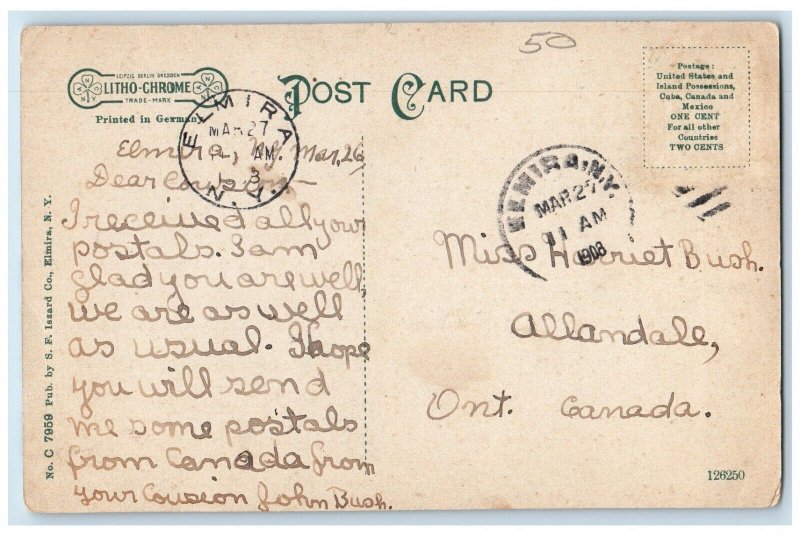 50
LEIPZIG BERLIN DRESDEN
LITHO-CHROME
TRADE-MARK
Printed in Germany
POST CARD
Postage:
United States and
Island Possessions,
Cuba, Canada and
Mexico
ONE CENT
For all other
Countries
TWO CENTS
ELMIRA
MAR 27
AM
N.Y.
ELMIRA, N.Y.
MAR 27
11 AM
1908
Elmira, N.Y. Mar, 26
Dear Cousion
I received all your
postals. I am
glad you are well,
we are as well
as usual. I hope
you will send
me some postals
from Canada from
your Cousion John Bush.
Miss Harriet Bush.
Allandale,
Ont. Canada.
No. C 7959 Pub. by S. F. Iszard Co., Elmira, N. Y.
126250